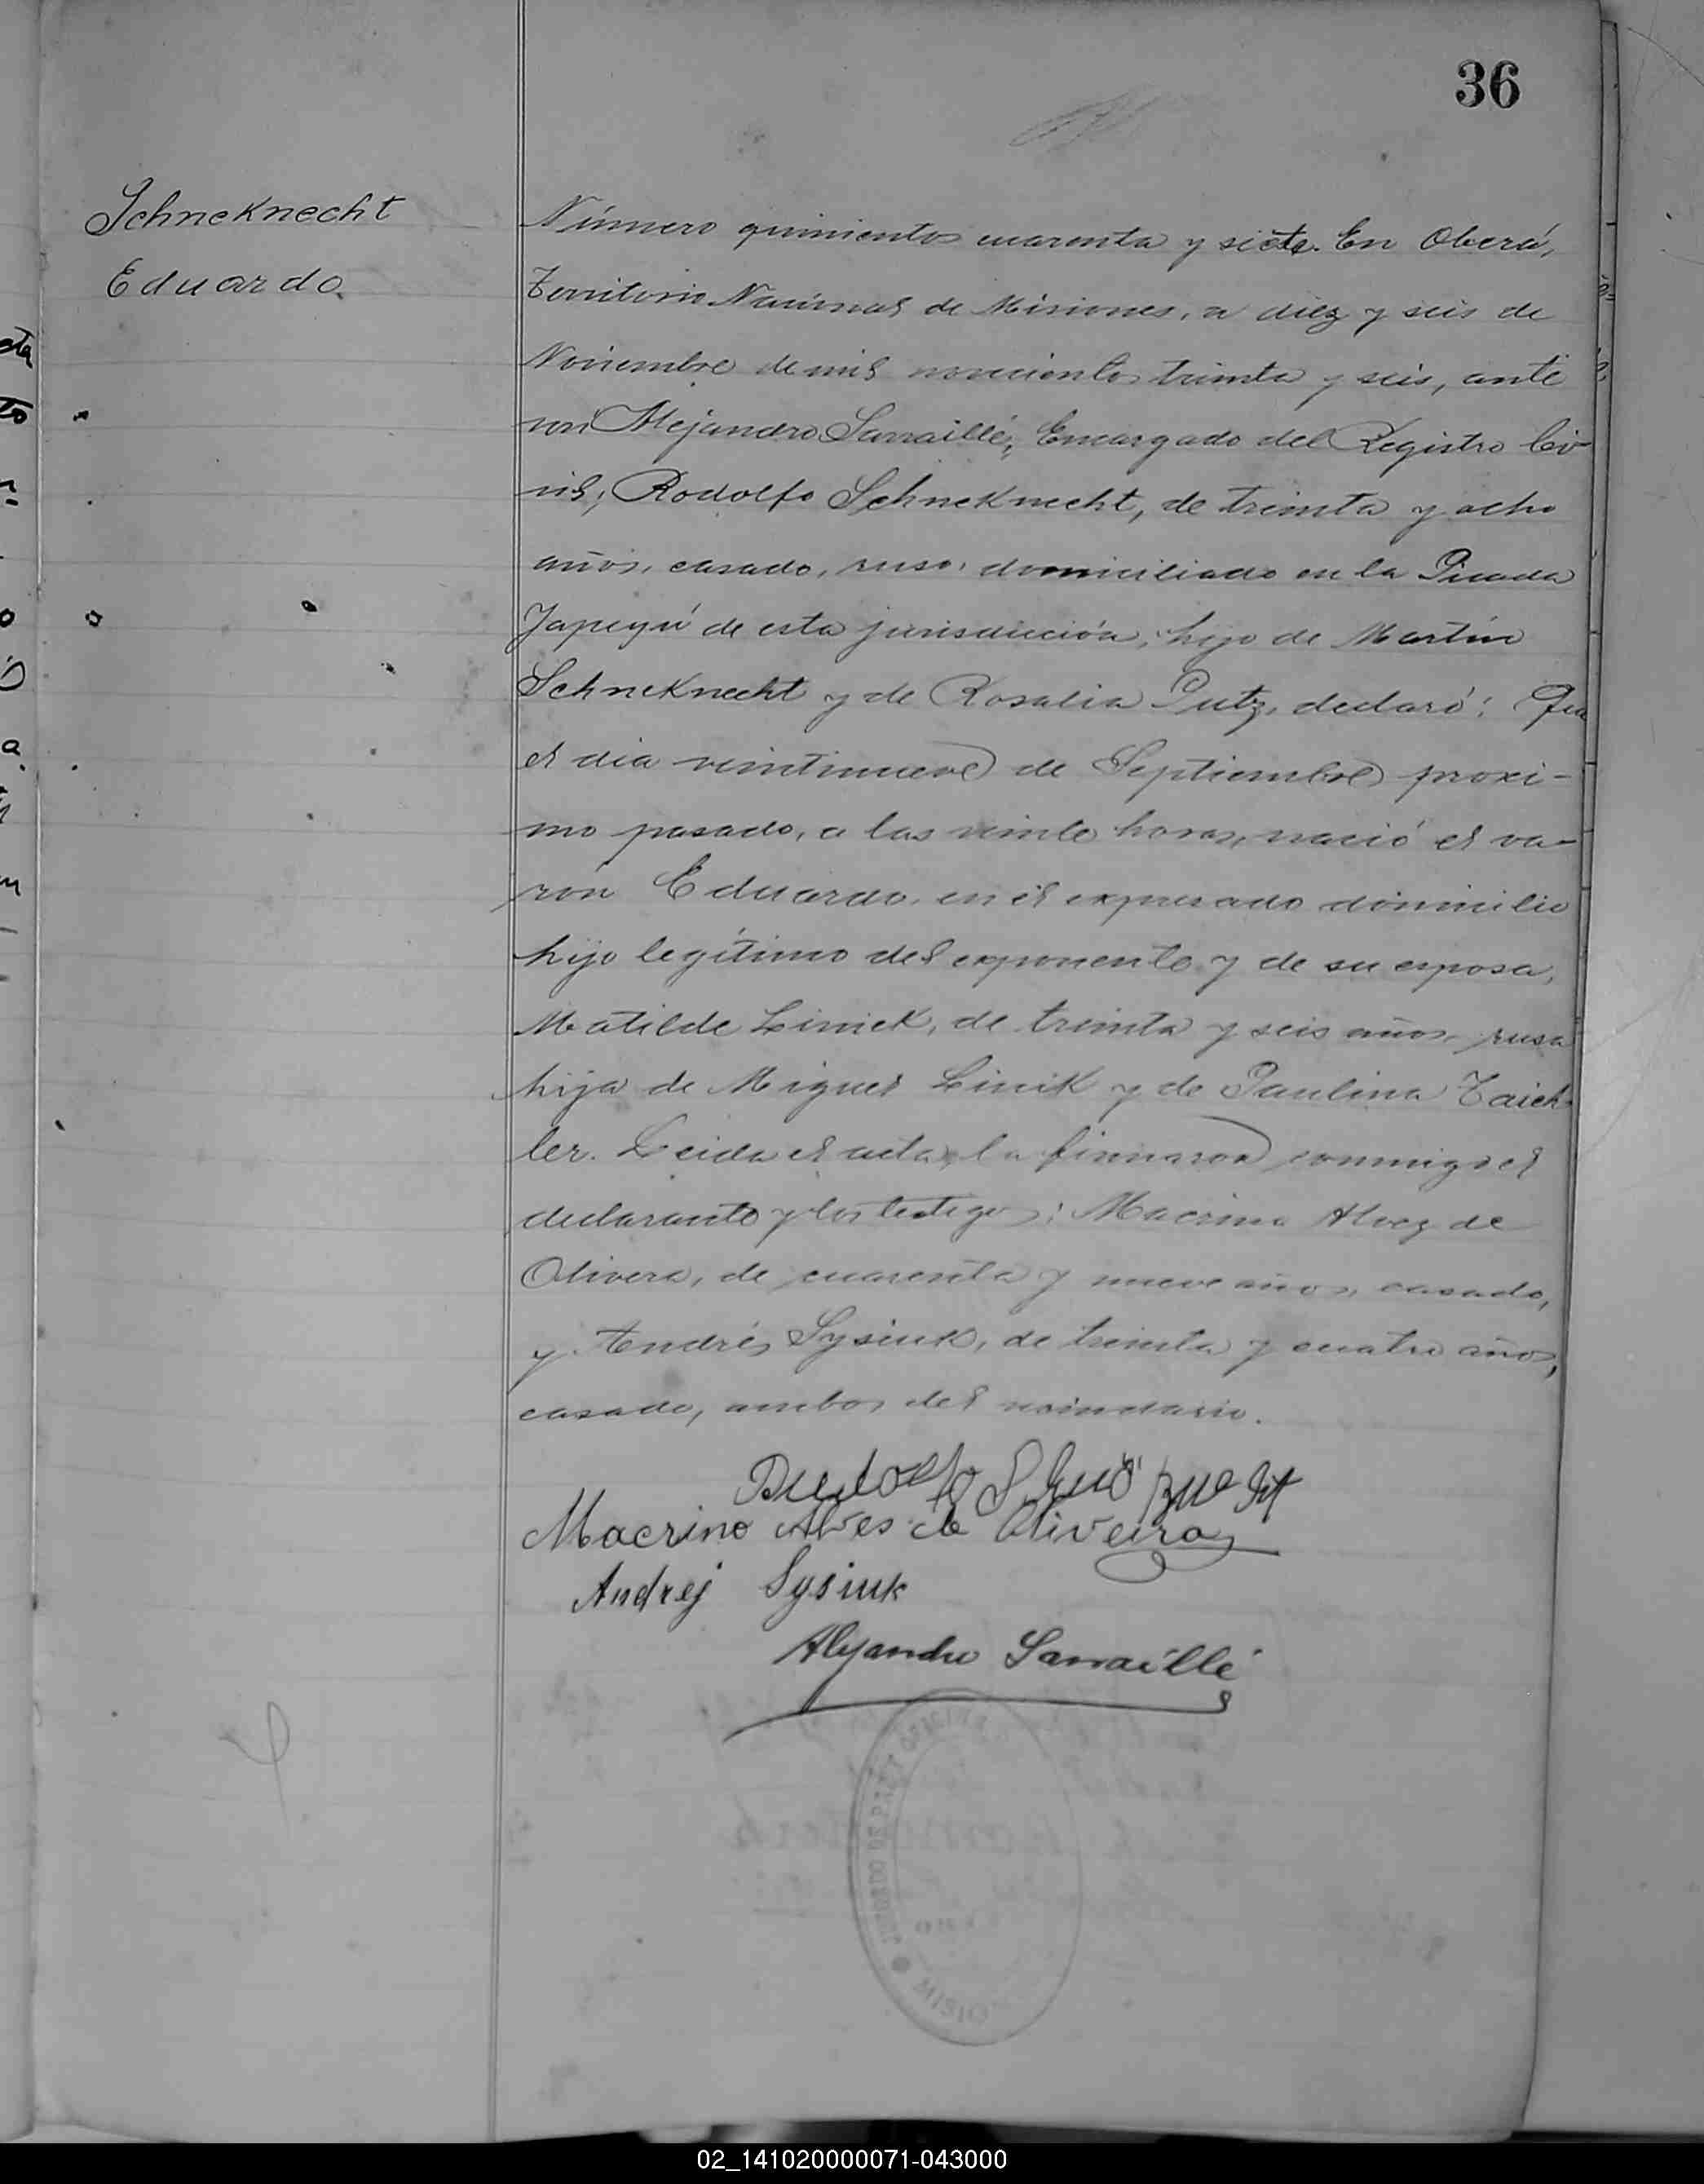 36
Schneknecht
Eduardo
Número quinientos cuarenta y siete. En Oberá,
Territorio Nacional de Misiones, a diez y seis de
Noviembre de mil novecientos treinta y seis, ante
mi Alejandro Sarraillé, Encargado del Registro Ci-
vil, Rodolfo Schneknecht, de treinta y ocho
años, casado, ruso, domiciliado en la Picada
Yapeyú de esta jurisdicción, hijo de Martin
Schneknecht y de Rosalia Putz, declaró: Que
el dia veintinueve de Septiembre proxi-
mo pasado, a las veinte horas, nació el va-
rón Eduardo, en el expresado domicilio
hijo legítimo del exponente y de su esposa,
Matilde Liniek, de treinta y seis años, rusa
hija de Miguel Linik y de Paulina Taich-
ler. Leida el acta, la firmaron conmigo el
declarante y los testigos: Macrino Alvez de
Olivera, de cuarenta y nueve años, casado,
y Andrés Sysiuk, de treinta y cuatro años,
casado, ambos del vecindario.
Macrino Alves de Oliveira
Andrej Sysiuk
Alejandro Sarraillé
02_141020000071-043000